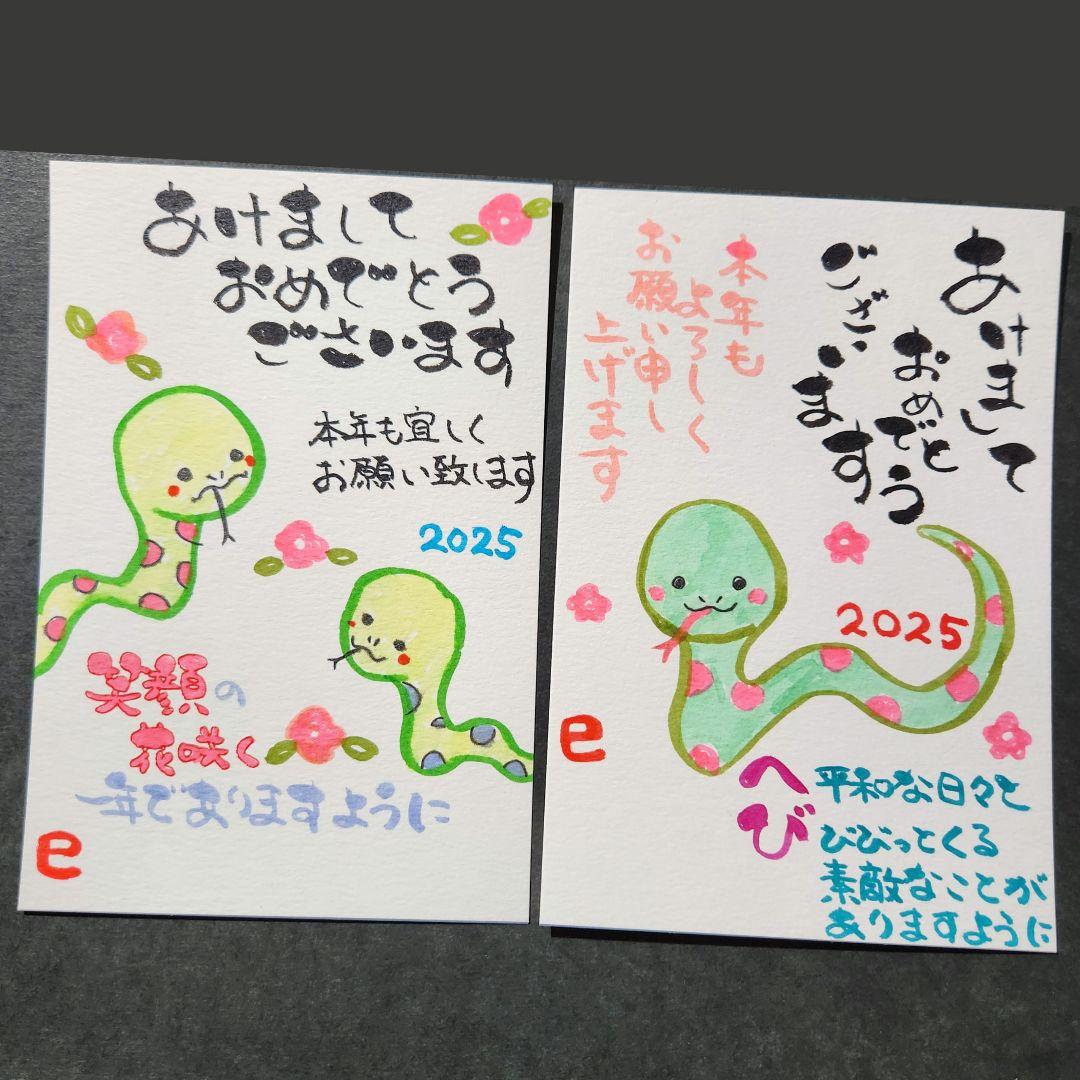 あけまして
おめでとう
ございます
本年も宜しく
お願い致します
2025
笑顔の
花咲く
一年でありますように
巳
あけまして
おめでとう
ございます
本年も
よろしく
お願い申し
上げます
2025
巳
へ平和な日々と
びびびっとくる
素敵なことが
ありますように